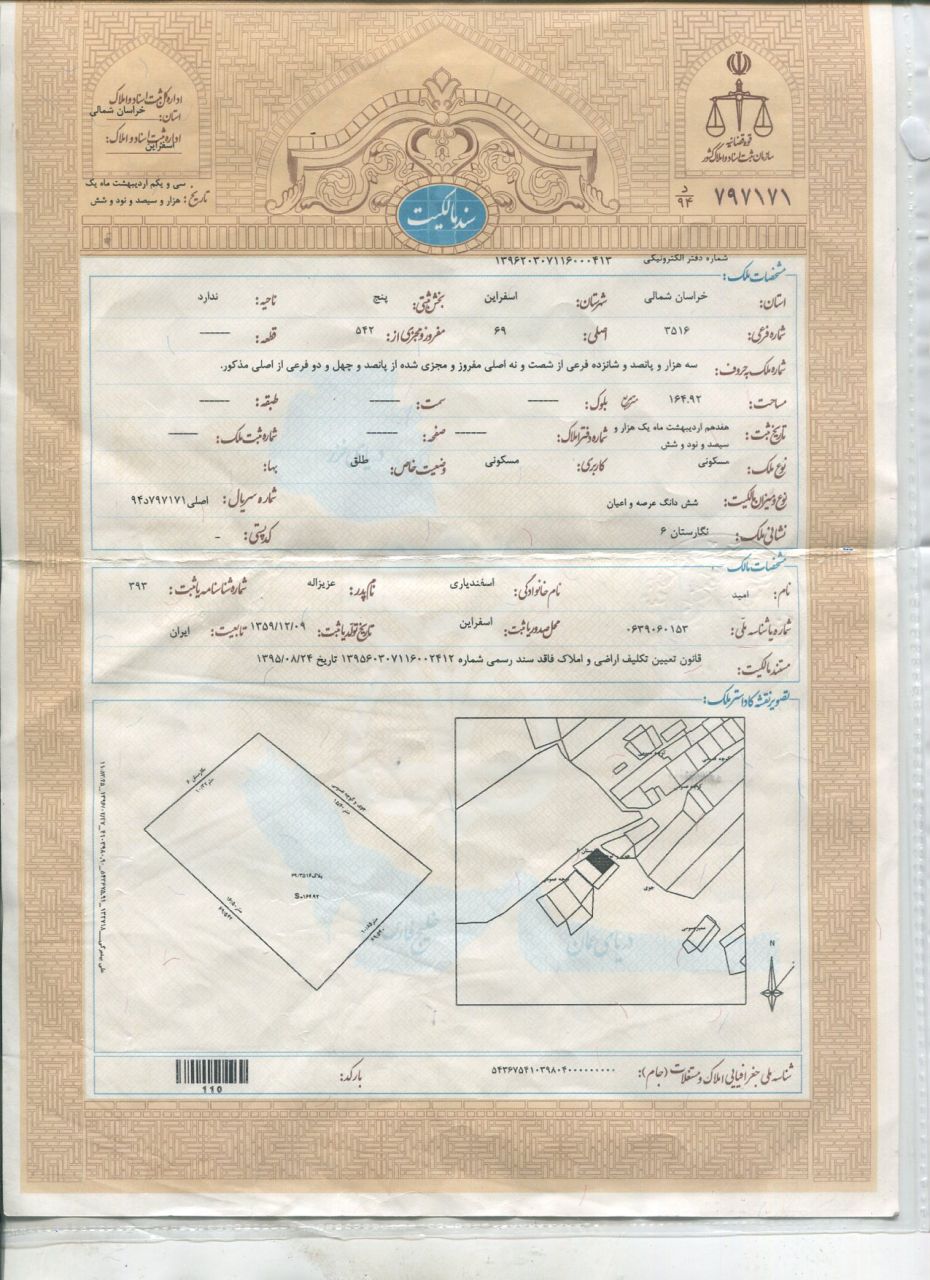 اداره کل ثبت اسناد و املاک
استان: خراسان شمالی
اداره ثبت اسناد و املاک:
اسفراین
تاریخ: سی و یکم اردیبهشت ماه یک
هزار و سیصد و نود و شش
قوه قضائیه
سازمان ثبت اسناد و املاک کشور
۷۹۷۱۷۱ د/۹۴
سند مالکیت
شماره دفتر الکترونیکی ۱۳۹۶۲۰۳۰۷۱۱۶۰۰۰۴۱۳
مشخصات ملک:
استان: خراسان شمالی شهرستان: اسفراین بخش ثبتی: پنج ناحیه: ندارد
شماره فرعی: ۳۵۱۶ اصلی: ۶۹ مفروز و مجزی از: ۵۴۲ قطعه: -----
شماره ملک به حروف: سه هزار و پانصد و شانزده فرعی از شصت و نه اصلی مفروز و مجزی شده از پانصد و چهل و دو فرعی از اصلی مذکور.
مساحت: ۱۶۴.۹۲ متر مربع بلوک: ----- سمت: ----- طبقه: -----
تاریخ ثبت: هفدهم اردیبهشت ماه یک هزار و سیصد و نود و شش شماره دفتر املاک: ----- صفحه: ----- شماره ثبت ملک: -----
نوع ملک: مسکونی کاربری: مسکونی وضعیت خاص: طلق بهاء:
نوع و میزان مالکیت: شش دانگ عرصه و اعیان شماره سریال: اصلی۷۹۷۱۷۱د۹۴
نشانی ملک: نگارستان ۶ کد پستی: -
مشخصات مالک:
نام: امید نام خانوادگی: اسفندیاری نام پدر: عزیزاله شماره شناسنامه یا ثبت: ۳۹۳
شماره یا شناسه ملی: ۰۶۳۹۰۶۰۱۵۳ محل صدور یا ثبت: اسفراین تاریخ تولد یا ثبت: ۱۳۵۹/۱۲/۰۹ تابعیت: ایران
مستند مالکیت: قانون تعیین تکلیف اراضی و املاک فاقد سند رسمی شماره ۱۳۹۵۶۰۳۰۷۱۱۶۰۰۲۴۱۲ تاریخ ۱۳۹۵/۰۸/۲۴
تصویر نقشه کاداستر ملک:
پلاک۶۹/۳۵۱۶
S=۱۶۴.۹۲
جوی
N
خلیج فارس
دریای عمان
شناسه ملی جغرافیایی املاک و مستغلات (جام): ۵۴۳۶۷۵۴۱۰۳۹۸۰۴۰۰۰۰۰۰۰۰۰
بارکد:
110